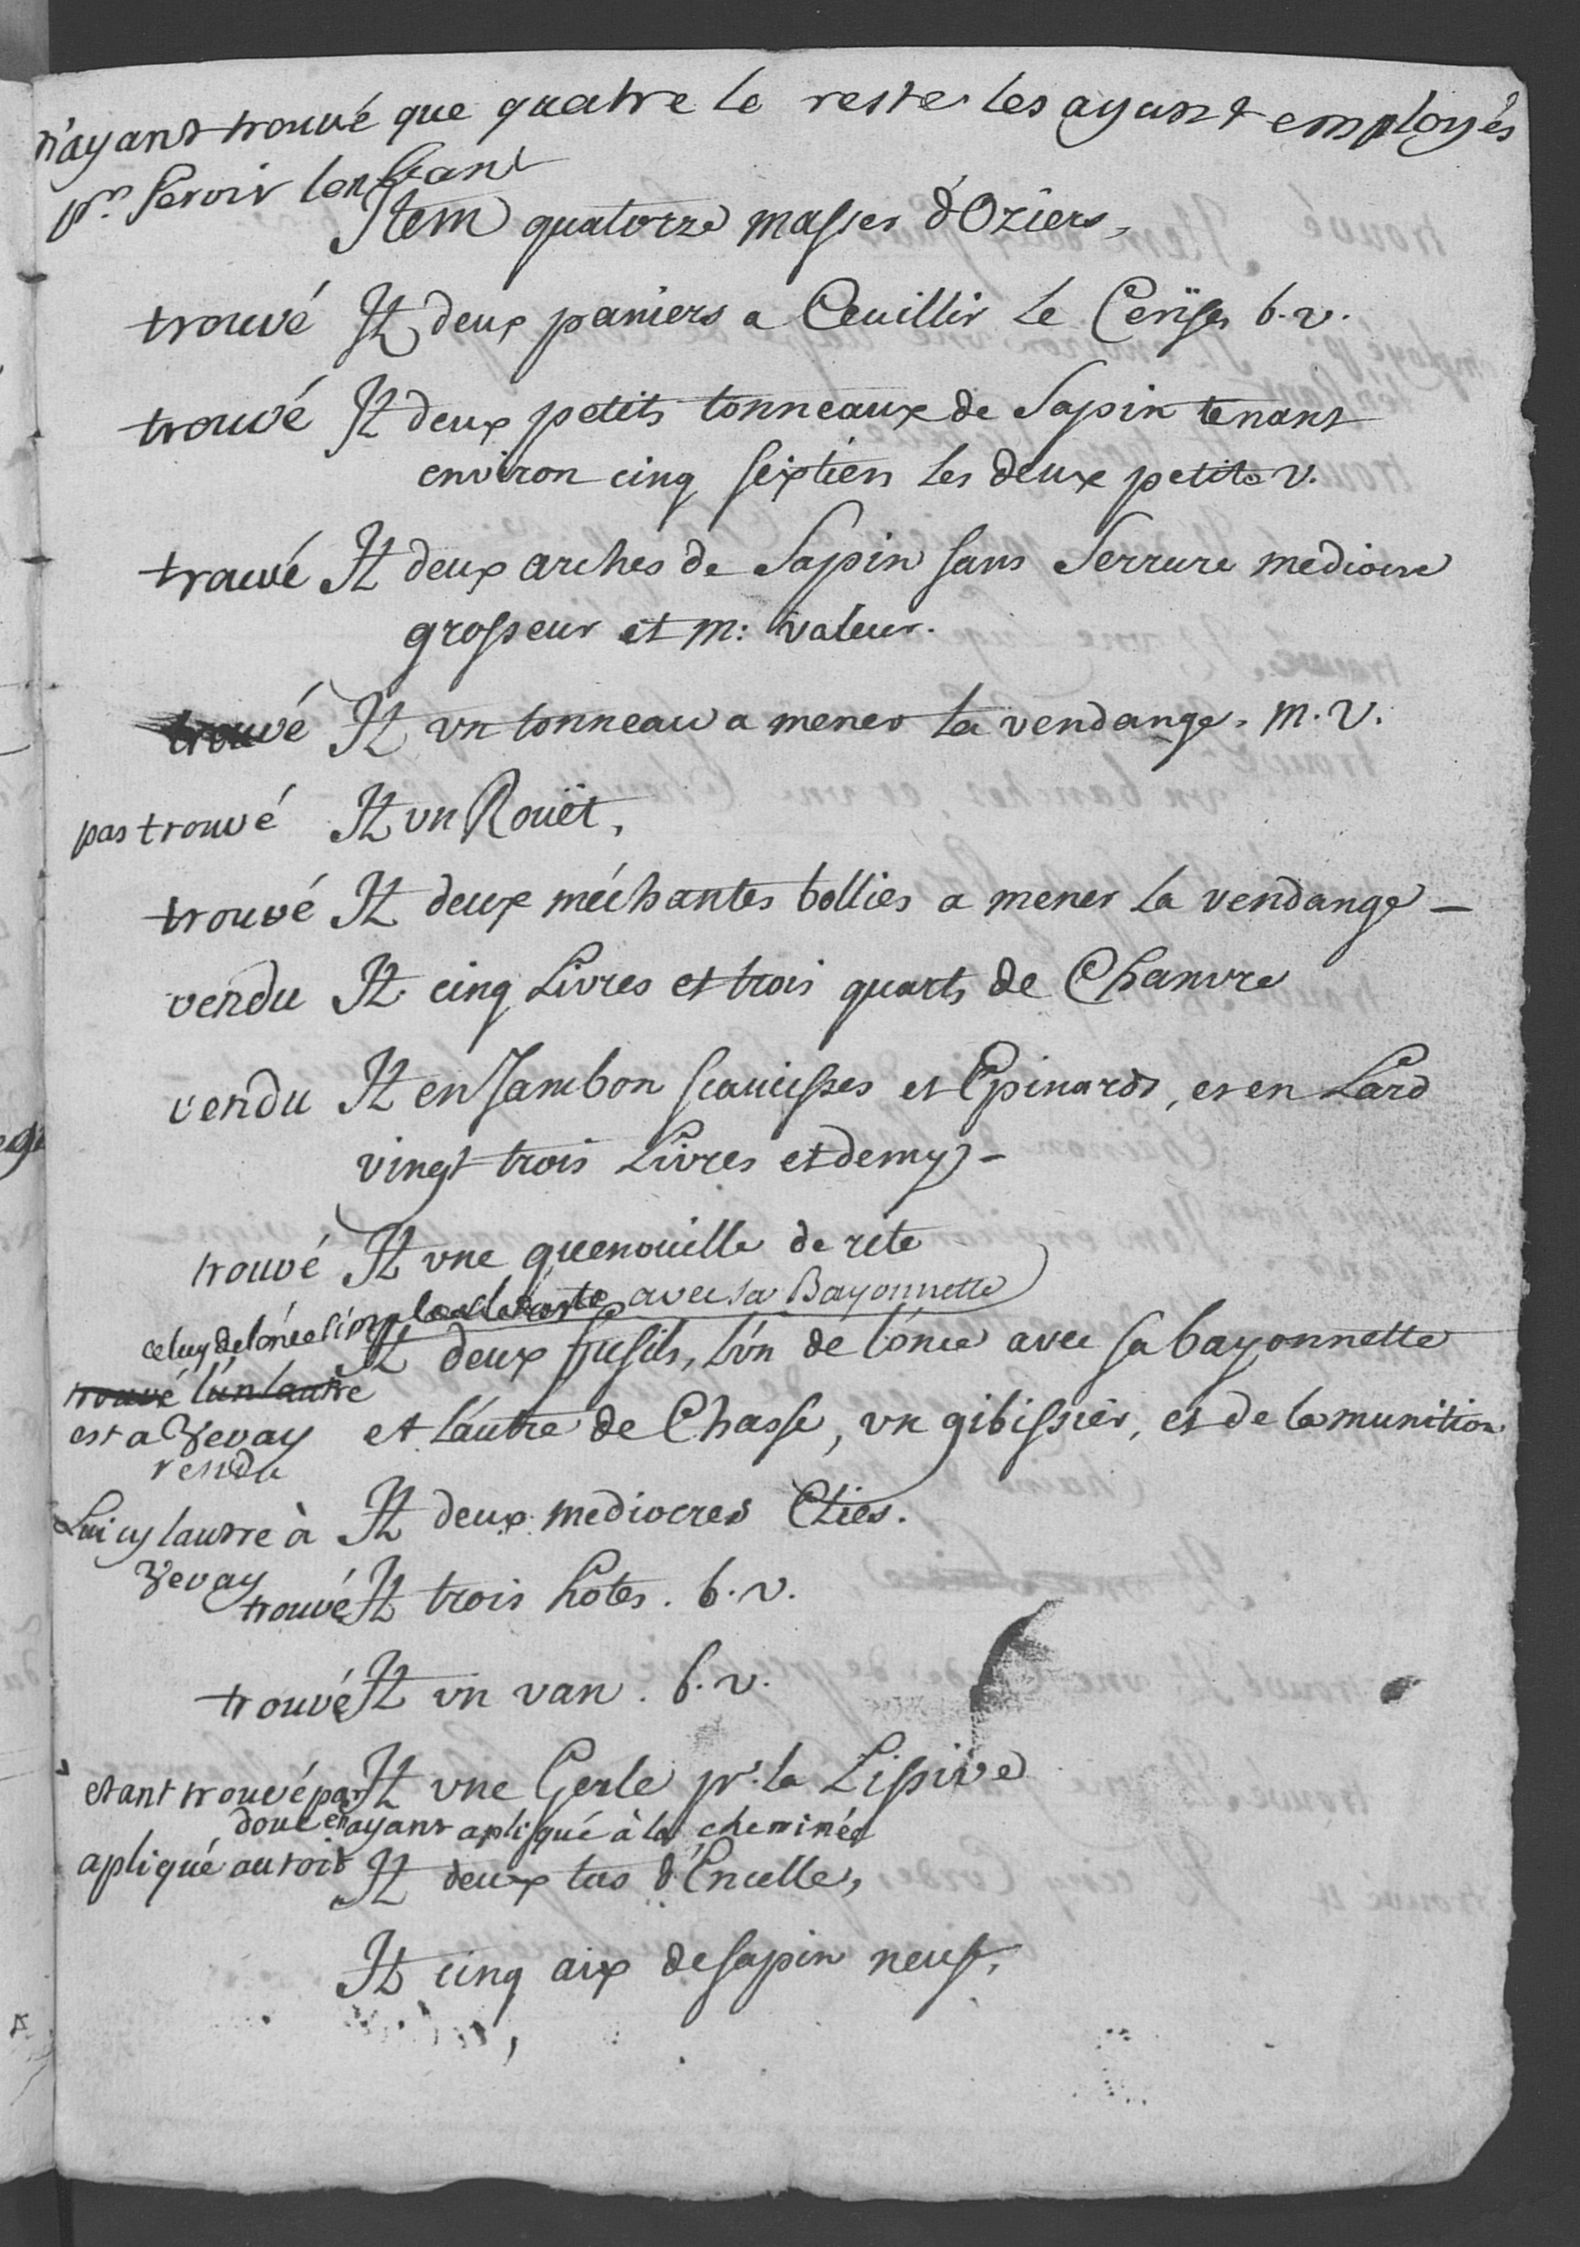 n'ayant trouvé que quatre le reste les ayant employés
pr. servir lenfant
Item quatorze masses d'Oziers,
trouvé It deux paniers a Ceuillir le Cerises b. v.
trouvé It deux petits tonneaux de Sapin tenant
environ cinq sextiers les deux petite v.
trouvé It deux arches de Sapin sans Serrure mediocre
grosseur et m: valeur.
trouvé It vn tonneau a mener la vendange. m. v.
pas trouvé It vn Rouët,
trouvé It deux méchantes bollies a mener la vendange —
vendu It cinq Livres et trois quarts de Chanvre
vendu It en Jambon scaucisses et Epinards, et en Lard
vingt trois Livres et demy –
trouvé It vne quenouille de rite
celuy de lonce avec sa Bayonnette
It deux fusils, l'vn de l'once avec sa bayonnette
trouvé l'un lautre
est a Vevay et l'autre de Chasse, vn gibissier, et de la munition
rendu
Lui cy lautre à It deux mediocres Eties.
Vevay
trouvé It trois hotes. b. v.
trouvé It vn van. b. v.
etant trouvé par It vne Gerle pr. la Lissive
doue en ayant apliqué à la cheminée
apliqué au toit It deux tas d'Encelle,
It cinq aix de sapin neuf,